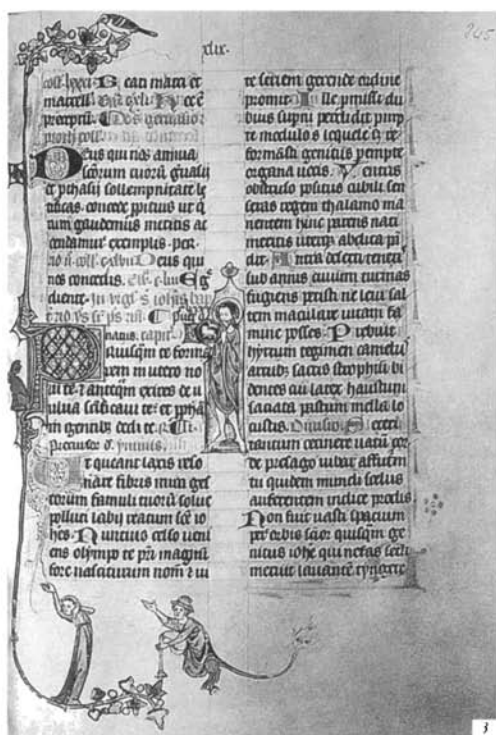 xlix.
245
coll. lxxxi. Beati marci et
marcell.
preceptū.
prothi coll.
Deus qui nos annua
scōrum tuorū
et pthasii sollempnitate le
tificas. concede ppitius ut q
rum gaudemus meritis ac
cendamur exemplis. per.
coll. Deus qui
nos concedis. Eg
diente. in vigł s iohis bap
natus. capit.
Priusqm te forma
rem in utero no
ui te: ⁊ anteqm exires de u
ulua scificaui te: et ppham
in gentibus dedi te.
precursor d. ymnus.
Ut queant laxis reso
nare fibris mira ges
torum famuli tuorū solue
polluti labii reatum scē io
hēs. Nuncius celso ueni
ens olympo te pri magnū
fore nasciturum nom̄ ⁊ ui
te seriem gerende ordine
promit. Ille pmissi du
bius supni perdidit pmp
te modulos loquele sꝫ re
formasti genitus pempte
organa uocis. Ventris
obstruso positus cubili sen
seras regem thalamo ma
nentem hinc parens nati
meritis uterq abdita pan
dit. Antra deserti teneris
sub annis ciuium turmas
fugiens petisti ne leui sal
tem maculare uitam fa
mine posses. Prebuit
hyrtum tegimen camelus
artubꝫ sacris strophium bi
dentes cui latex haustum
sociata pastum mella lo
custis. Diuisio. Ceteri
tantum cecinere uatū cor
de presago iubar affuturū
tu quidem mundi scelus
auferentem indice prodis.
Non fuit uasti spacium
per orbis scior quisqm ge
nitus iohe qui nefas secli
meruit lauantē tyngere
3